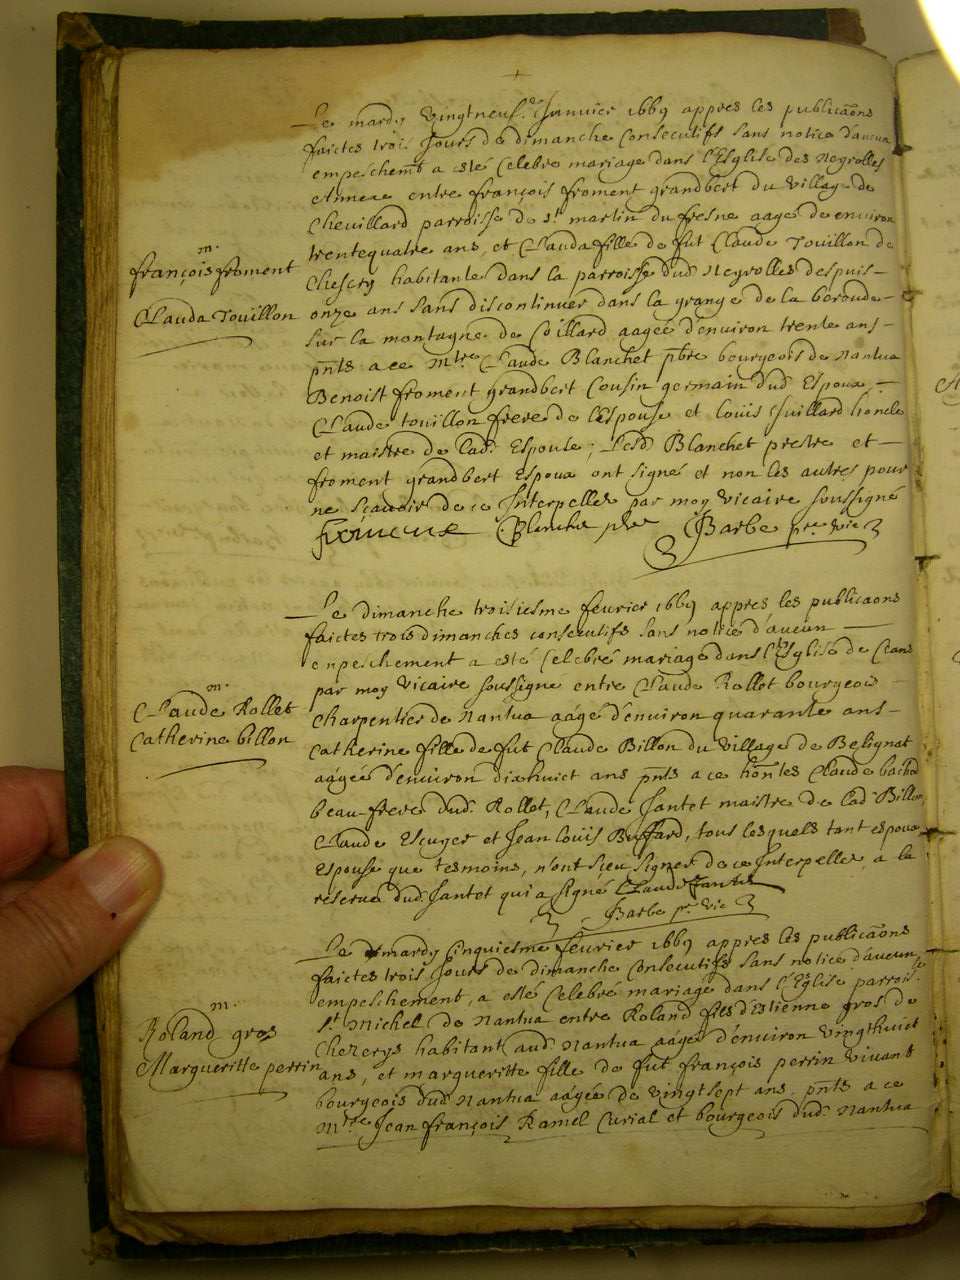 Le mardy vingtneuf.e Janvier 1669 appres les publicãons
faictes trois Jours de dimanche Consecutifs sans notice d'aucun
empeschem̃t a esté Celebré mariage dans l'Esglise des Neyrolles
Annexe entre françois froment grandbert du village de
Chevillard parroisse de St martin du fresne aagé de environ
trentequatre ans, et Clauda fille de fut Claude Touillon de
habitante dans la parroisse dud. Neyrolles despuis
onze ans sans discontinuer dans la grange de la
sur la montagne de Coillard aagée d'environ trente ans
pñts a ce Mtre Claude Blanchet pbre bourgeois de Nantua
Benoist froment grandbert Cousin germain dud. Espoux,
Claude touillon frere de l'Espouse et Loüis Juillard
et maistre de Lad. Espouse; Lesd. Blanchet prestre et
froment grandbert Espoux ont signé et non les autres pour
ne sçavoir de ce Interpellés par moy vicaire soussigné
froment Blanchet pbre Barbe pre. vic.
m.
françois froment
Clauda Touillon
Le dimanche troisiesme fevrier 1669 appres les publicaons
faictes trois dimanches consecutifs sans notice d'aucun
enpeschement a esté Celebré mariage dans l'Esglise de
par moy vicaire soussigné entre Claude Rollet bourgeois
Charpentier de Nantua aâgé d'environ quarante ans
Catherine fille de fut Claude Billon du village de Belignat
aâgée d'environ dixhuict ans pñts a ce hoñtes Claude
beau-frere dud. Rollet, Claude Jantet maistre de Lad. Billon,
Claude Escuyer et Jean Loüis Buffard, tous lesquels tant espoux
Espouse que tesmoins, n'ont sceu signer de ce Interpellés a la
reserve dud. Jantet qui a signé Claude Jantet
Barbe pr. vic.
m.
Claude Rollet
Catherine billon
Le mardy Cinquiesme fevrier 1669 appres les publicãons
faictes trois Jours de dimanche Consecutifs sans notice d'aucun
empeschement, a esté Celebré mariage dans l'Esglise parroisse
St Michel de Nantua entre Roland fils d'Estienne gros de
Chezerys habitant aud. Nantua aâgé d'environ vingthuict
ans, et margueritte fille de fut françois perrin vivant
bourgeois dud. Nantua aâgée de vingtsept ans, pñts a ce
Mtre Jean françois Ramel Curial et bourgeois dud. Nantua
m.
Roland gros
Margueritte perrin